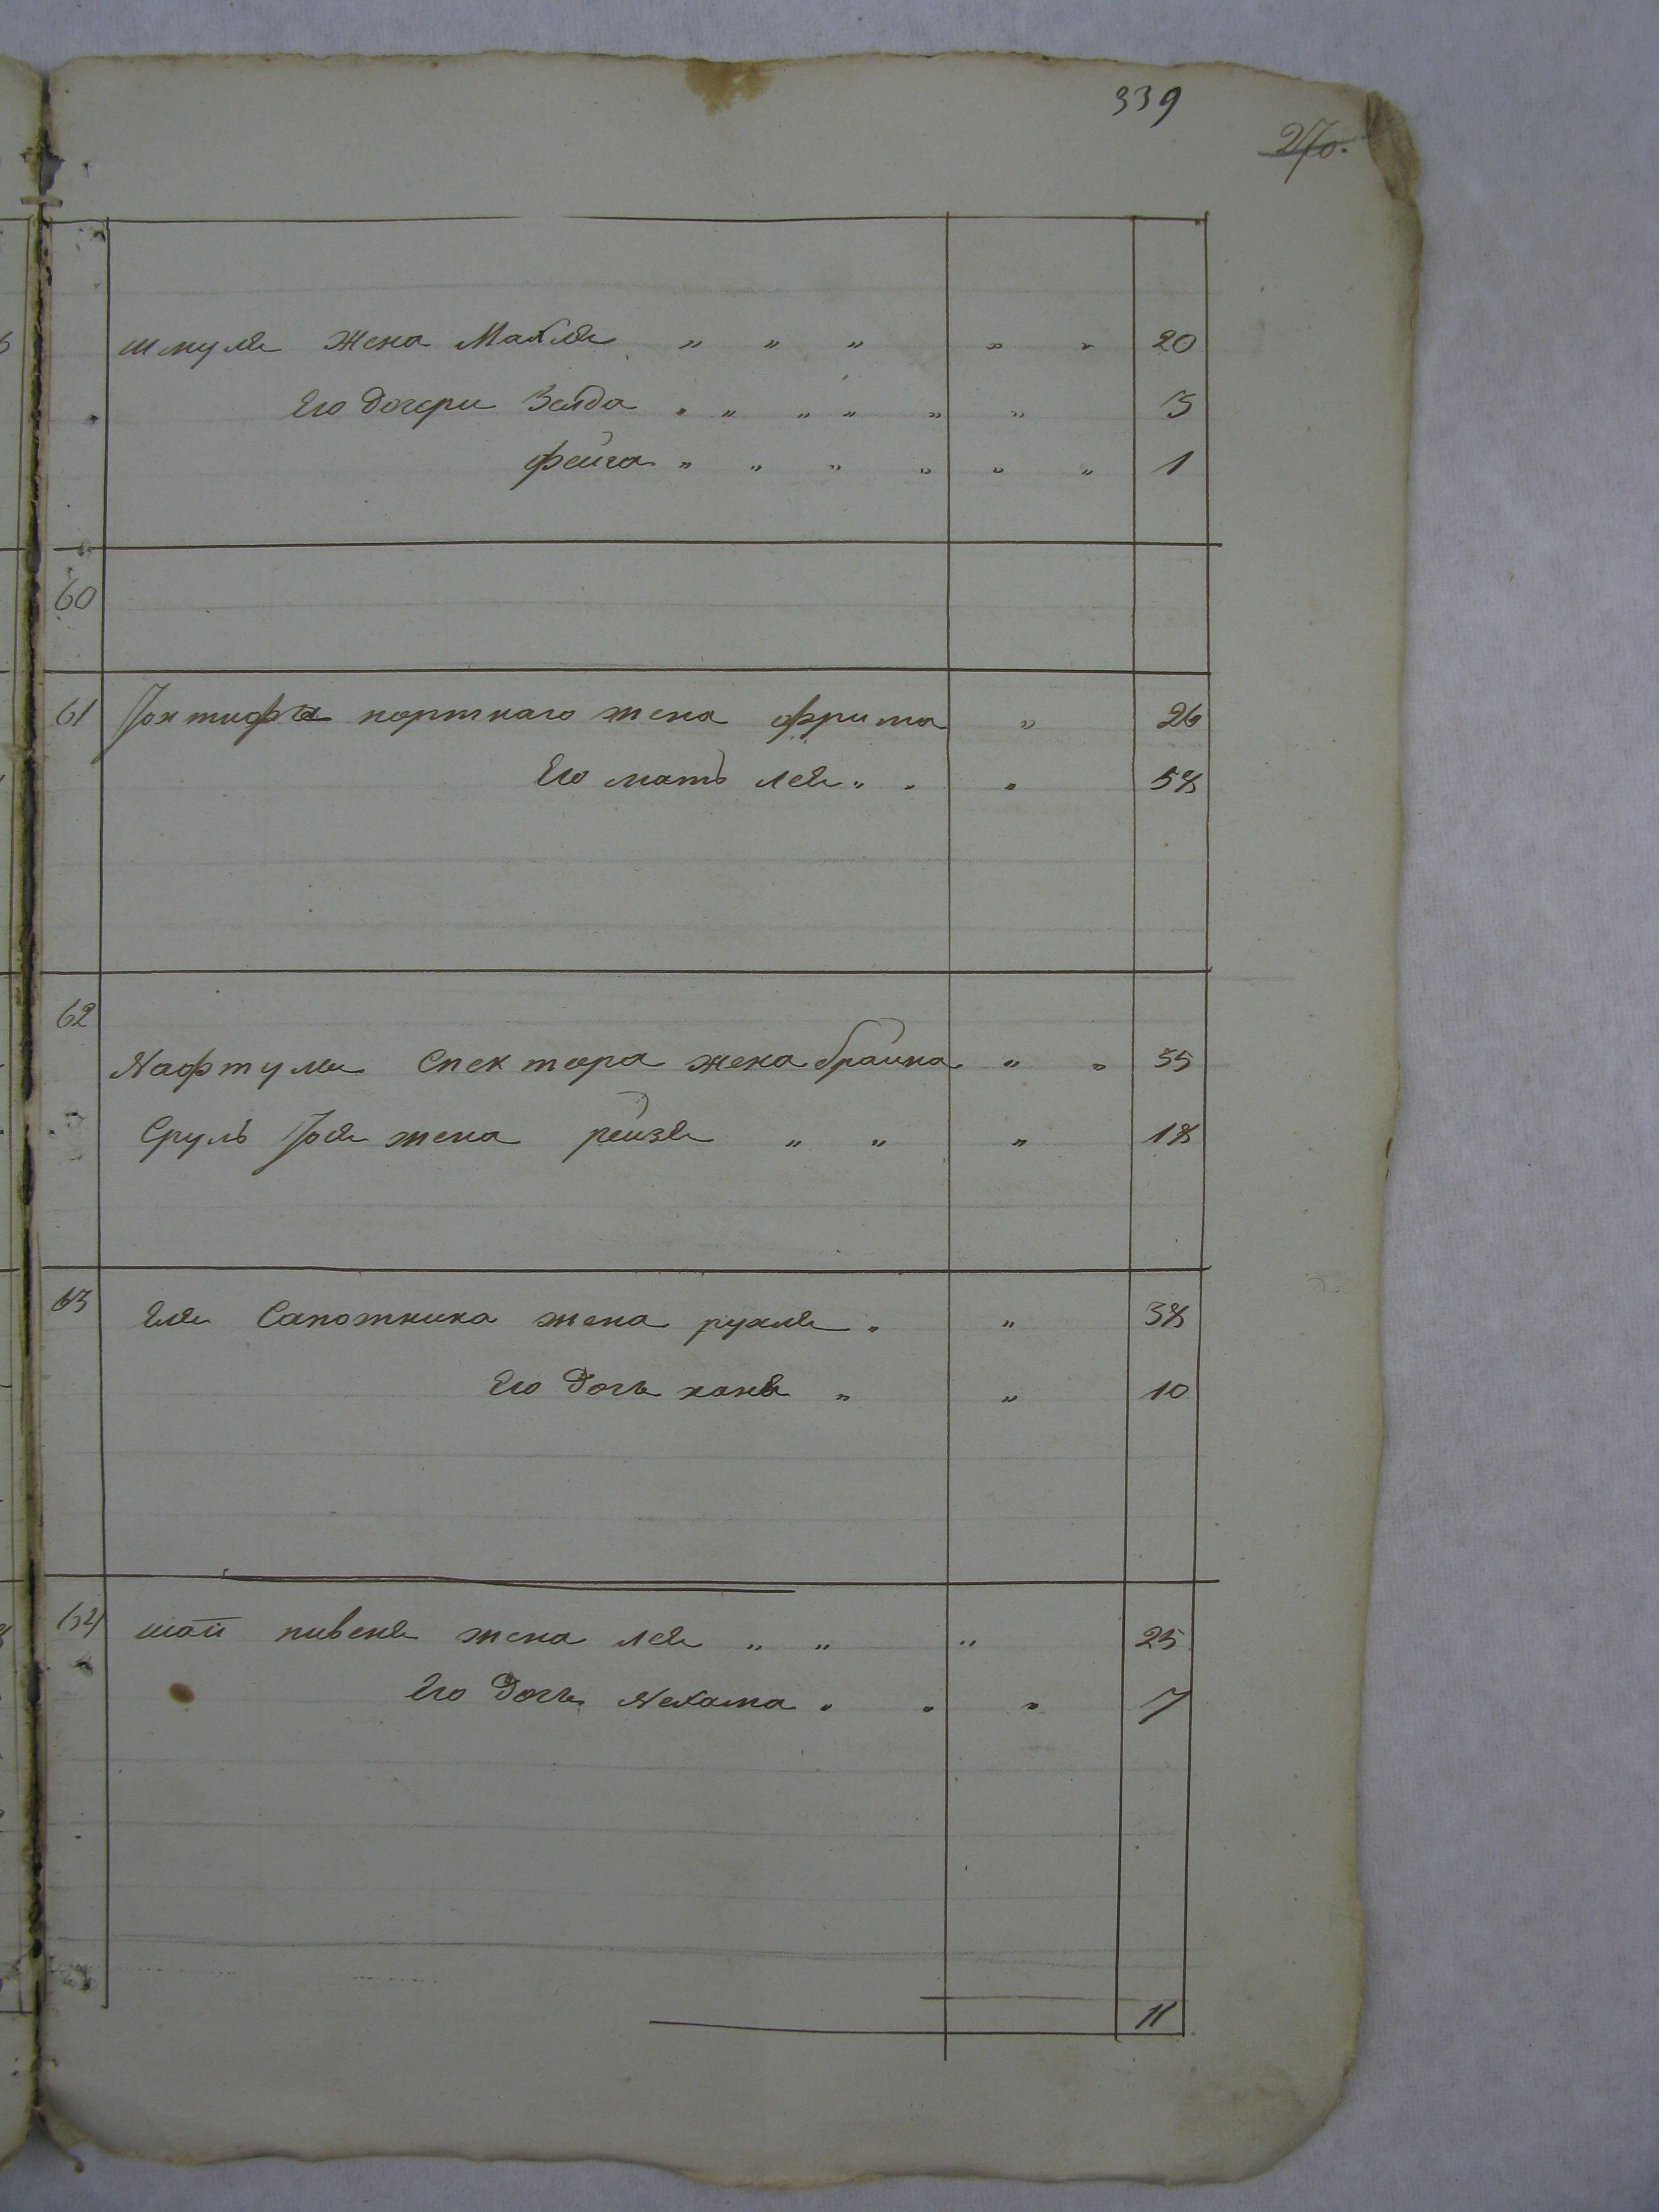 339
270.
шмуля жена Махля " " " " " 20
Его дочери Зелда " " " " " " 3
фейга " " " " " " 1
60
61 Іонтифа портнаго жена фрима " 26
Его мать лея " " " 58
62
Нафтули Спектора жена брайна " " 55
Сруль Іоя жена рейзя " " " 18
63 Еля Сапожника жена рухля " " 38
Его дочь хана " " 10
64 шаи пивеня жена лея " " " 25
Его дочь Нехама " " " 7
11